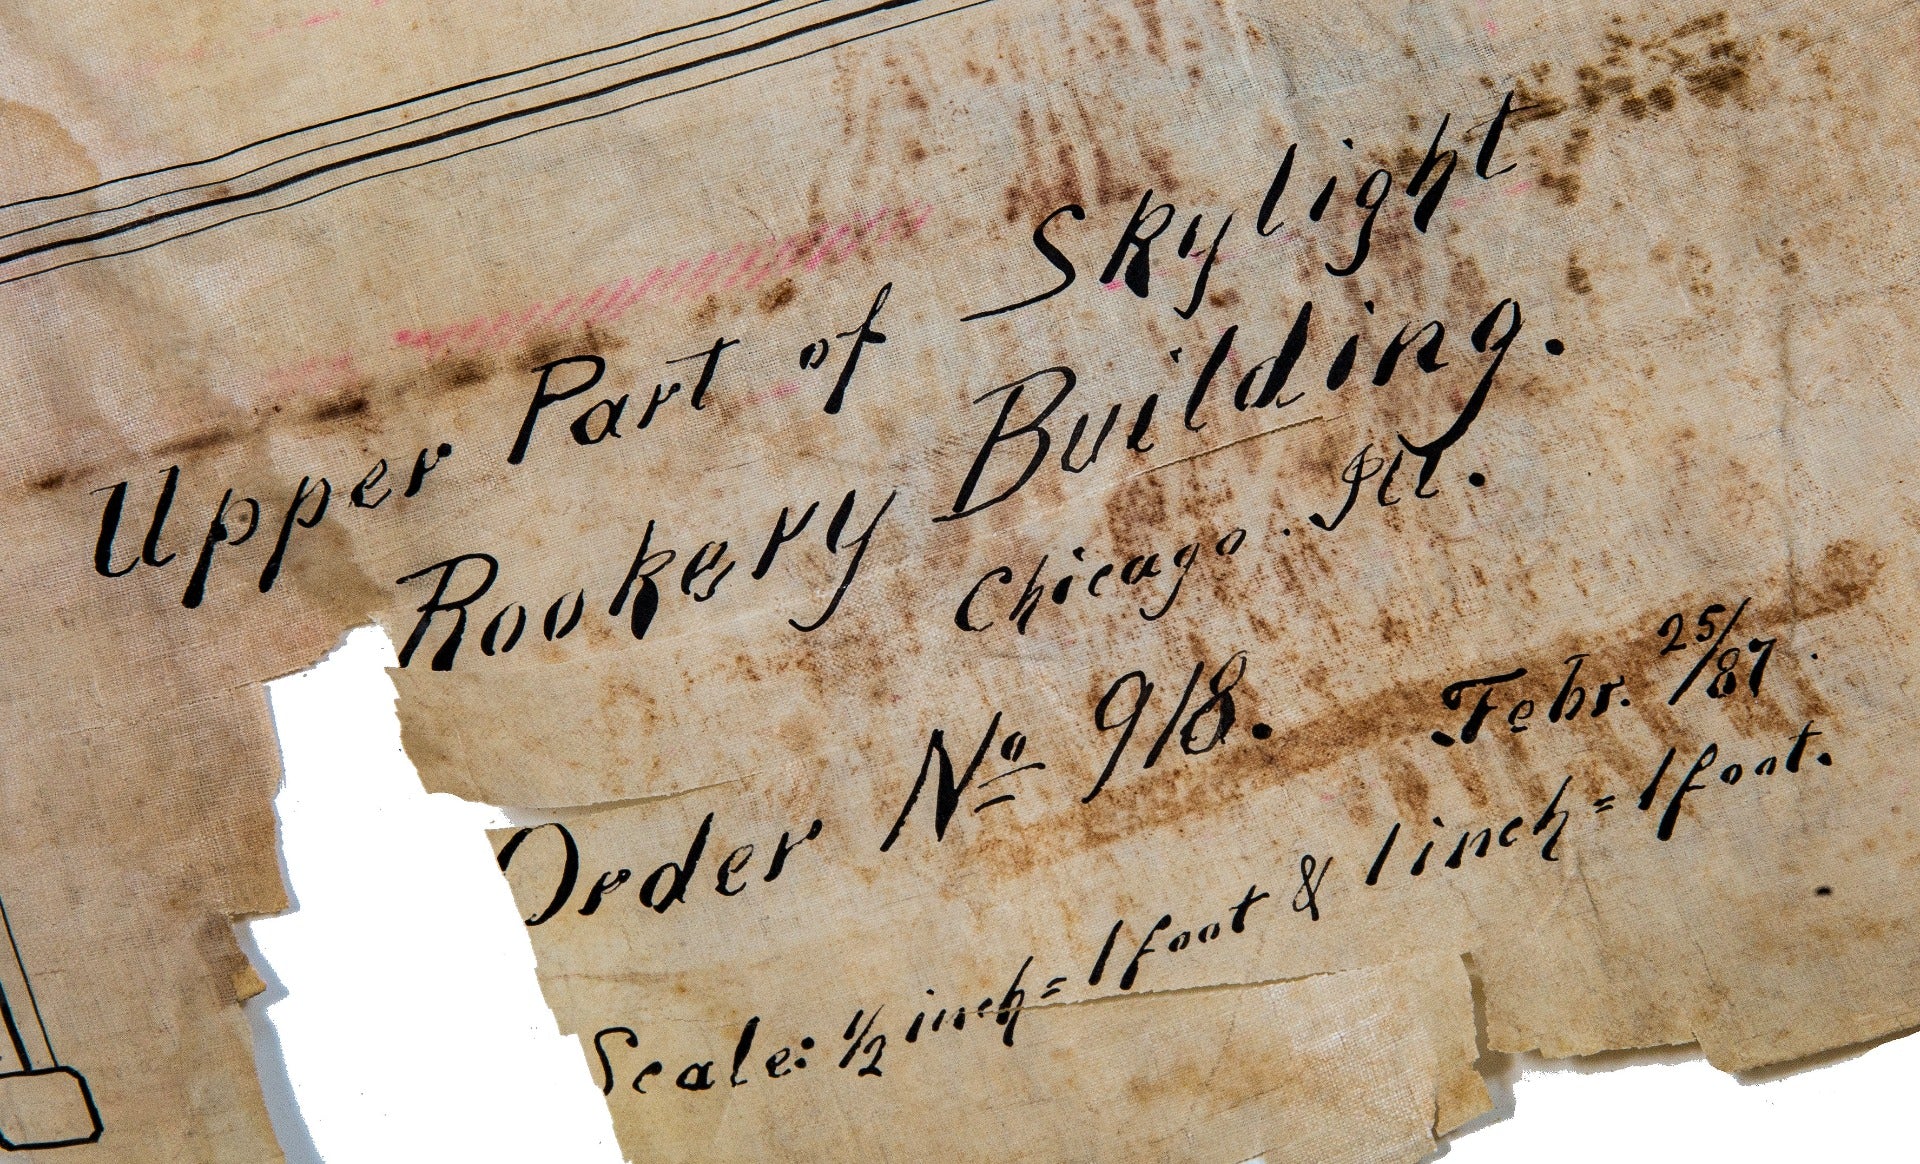 Upper Part of Skylight
Rookery Building.
Chicago. Ill.
Order Nº 918. Febr. 25/87.
Scale: ½ inch = 1 foot & 1 inch = 1 foot.